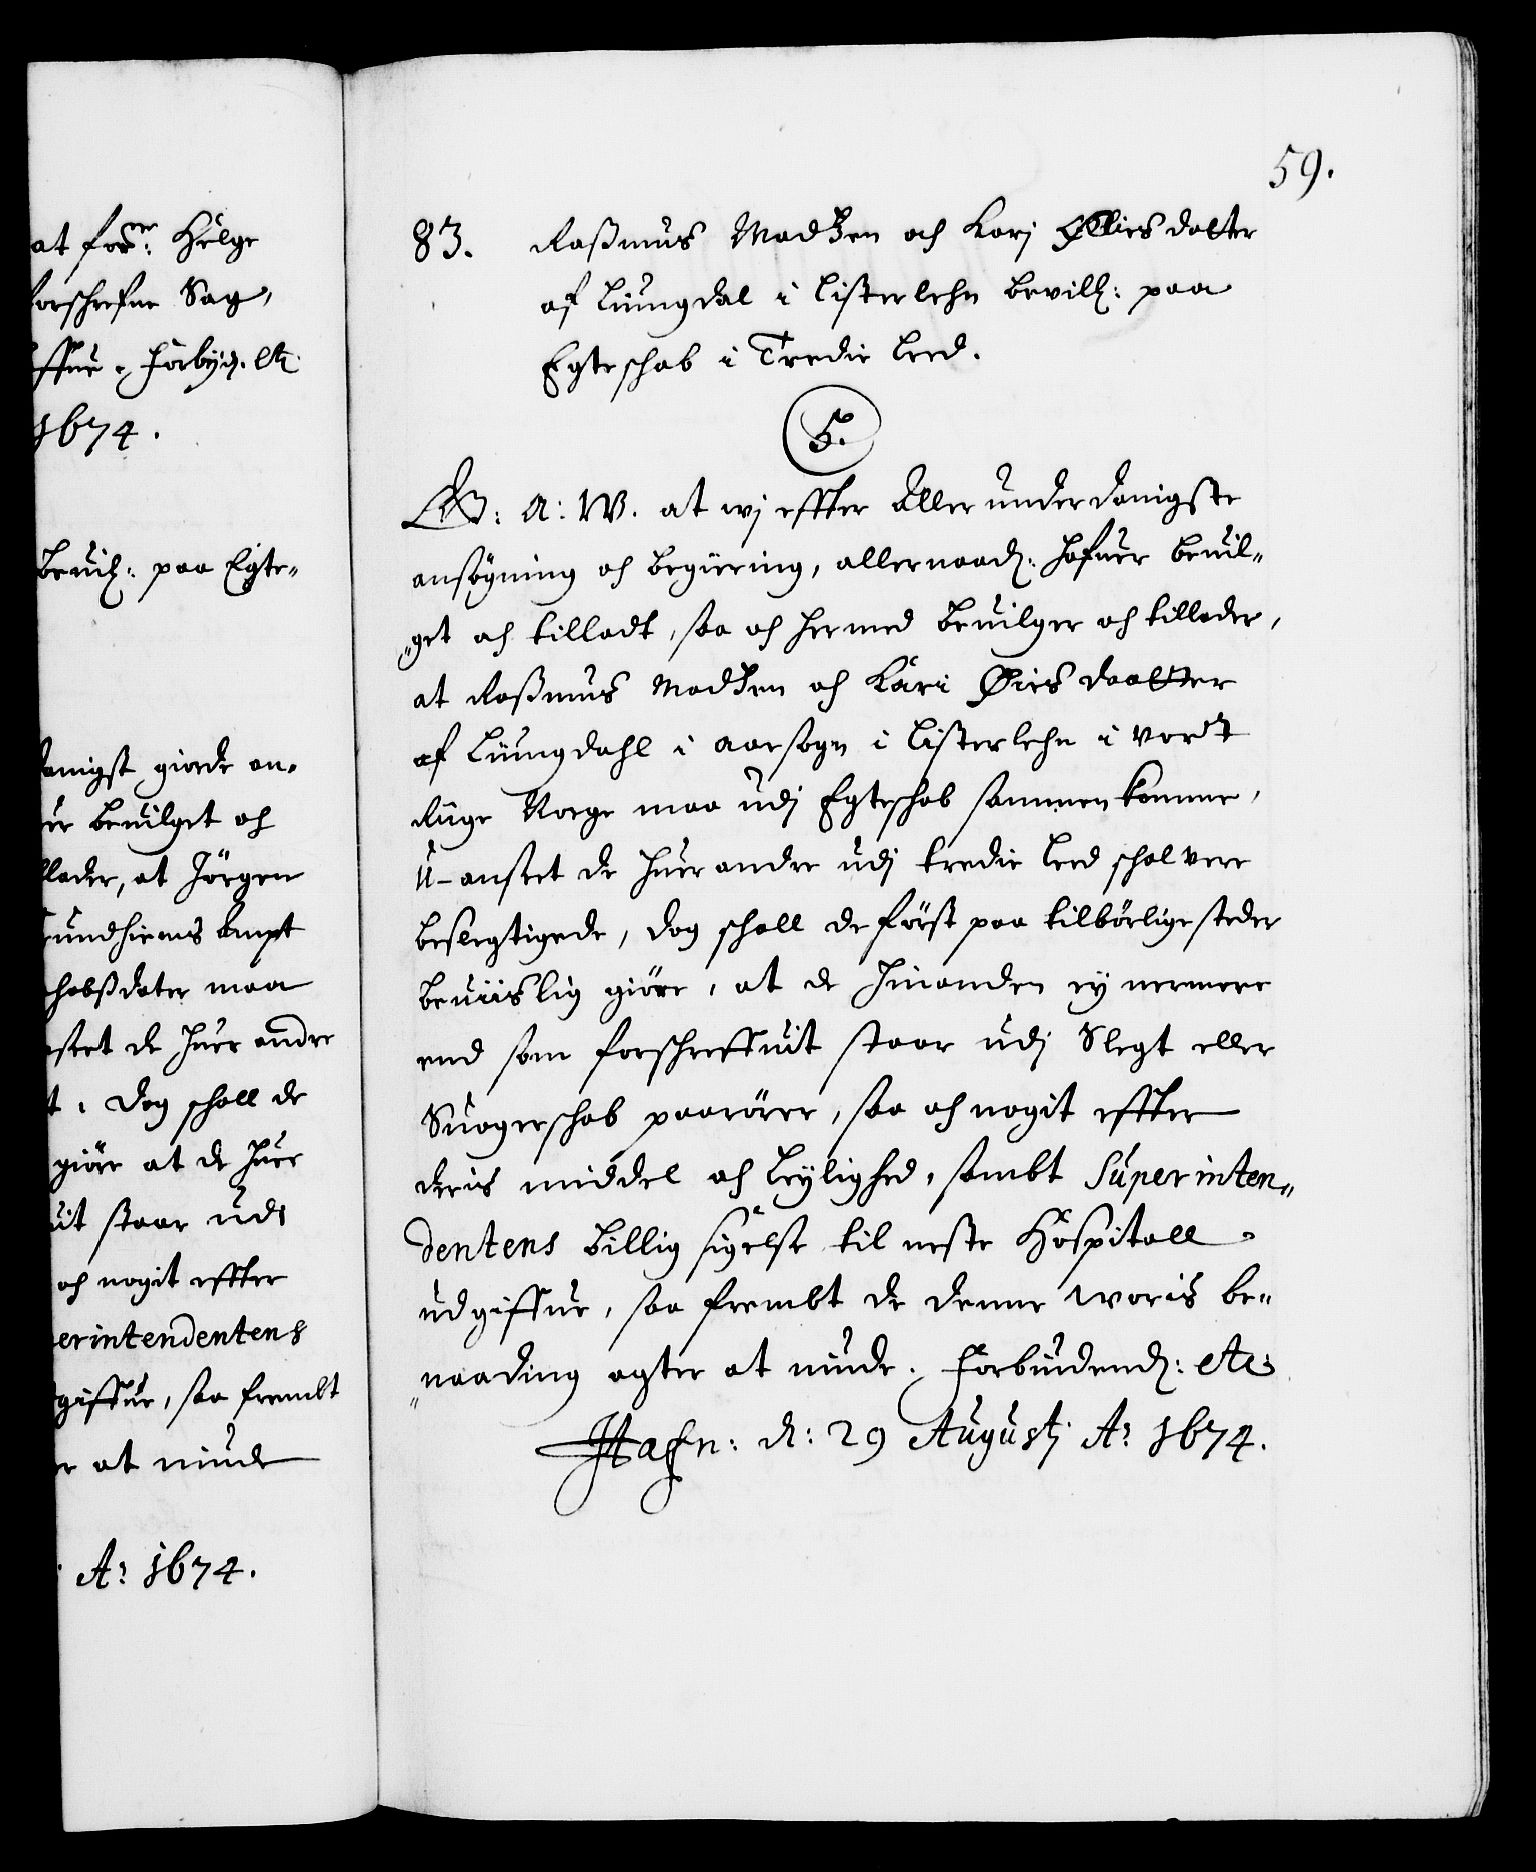 at fors:ne Helge
forschrefne Sag,
effue, Forbijd. etc
1674.
Beuilg: paa Egte„
danigst giorde an„
uer beuilget och
llader, at Jörgen
rundhiembs Ampt
chobßdater maa
nseet de huer andre
t, dog schall de
giöre at de huer
uit staar udi
och nogit effter
erintendentens
dgiffue, saa frembt
er at niude
Ao 1674.
59.
83. Raßmus Madtzen och Karj Ølliesdatter
af Liungdal i Listerlehn bevilg: paa
Egteschab i Tredie leed.
5.
C5: A: W. at wj effter Aller underdanigste
ansögning och begiering, allernaadg: hafuer beuil„
„get och tilladt, saa och hermed beuilger och tillader,
at Raßmus Madtzen och Kari Øiesdaatter
af Liungdahl i Aaesogn i Listerlehn i vort
Riige Norge maa udj Egteschab sammenkomme,
U-anseet de huer andre udj tredie leed schal vere
beslegtigede, dog schall de först paa tilbörlige steder
beuiislig giöre, at de hinanden ej nermere
end som forschreffuit staar udj Slegt eller
Suogerschab paarörer, saa och nogit effter
deris middel och leylighed, sambt Superinten„
dentens billig sigelse til neste Hospitall
udgiffue, saa frembt de denne woris be„
„naading agter at niude. Forbiudendg: etc:
Hafn: d: 29 Augustj Ao 1674.